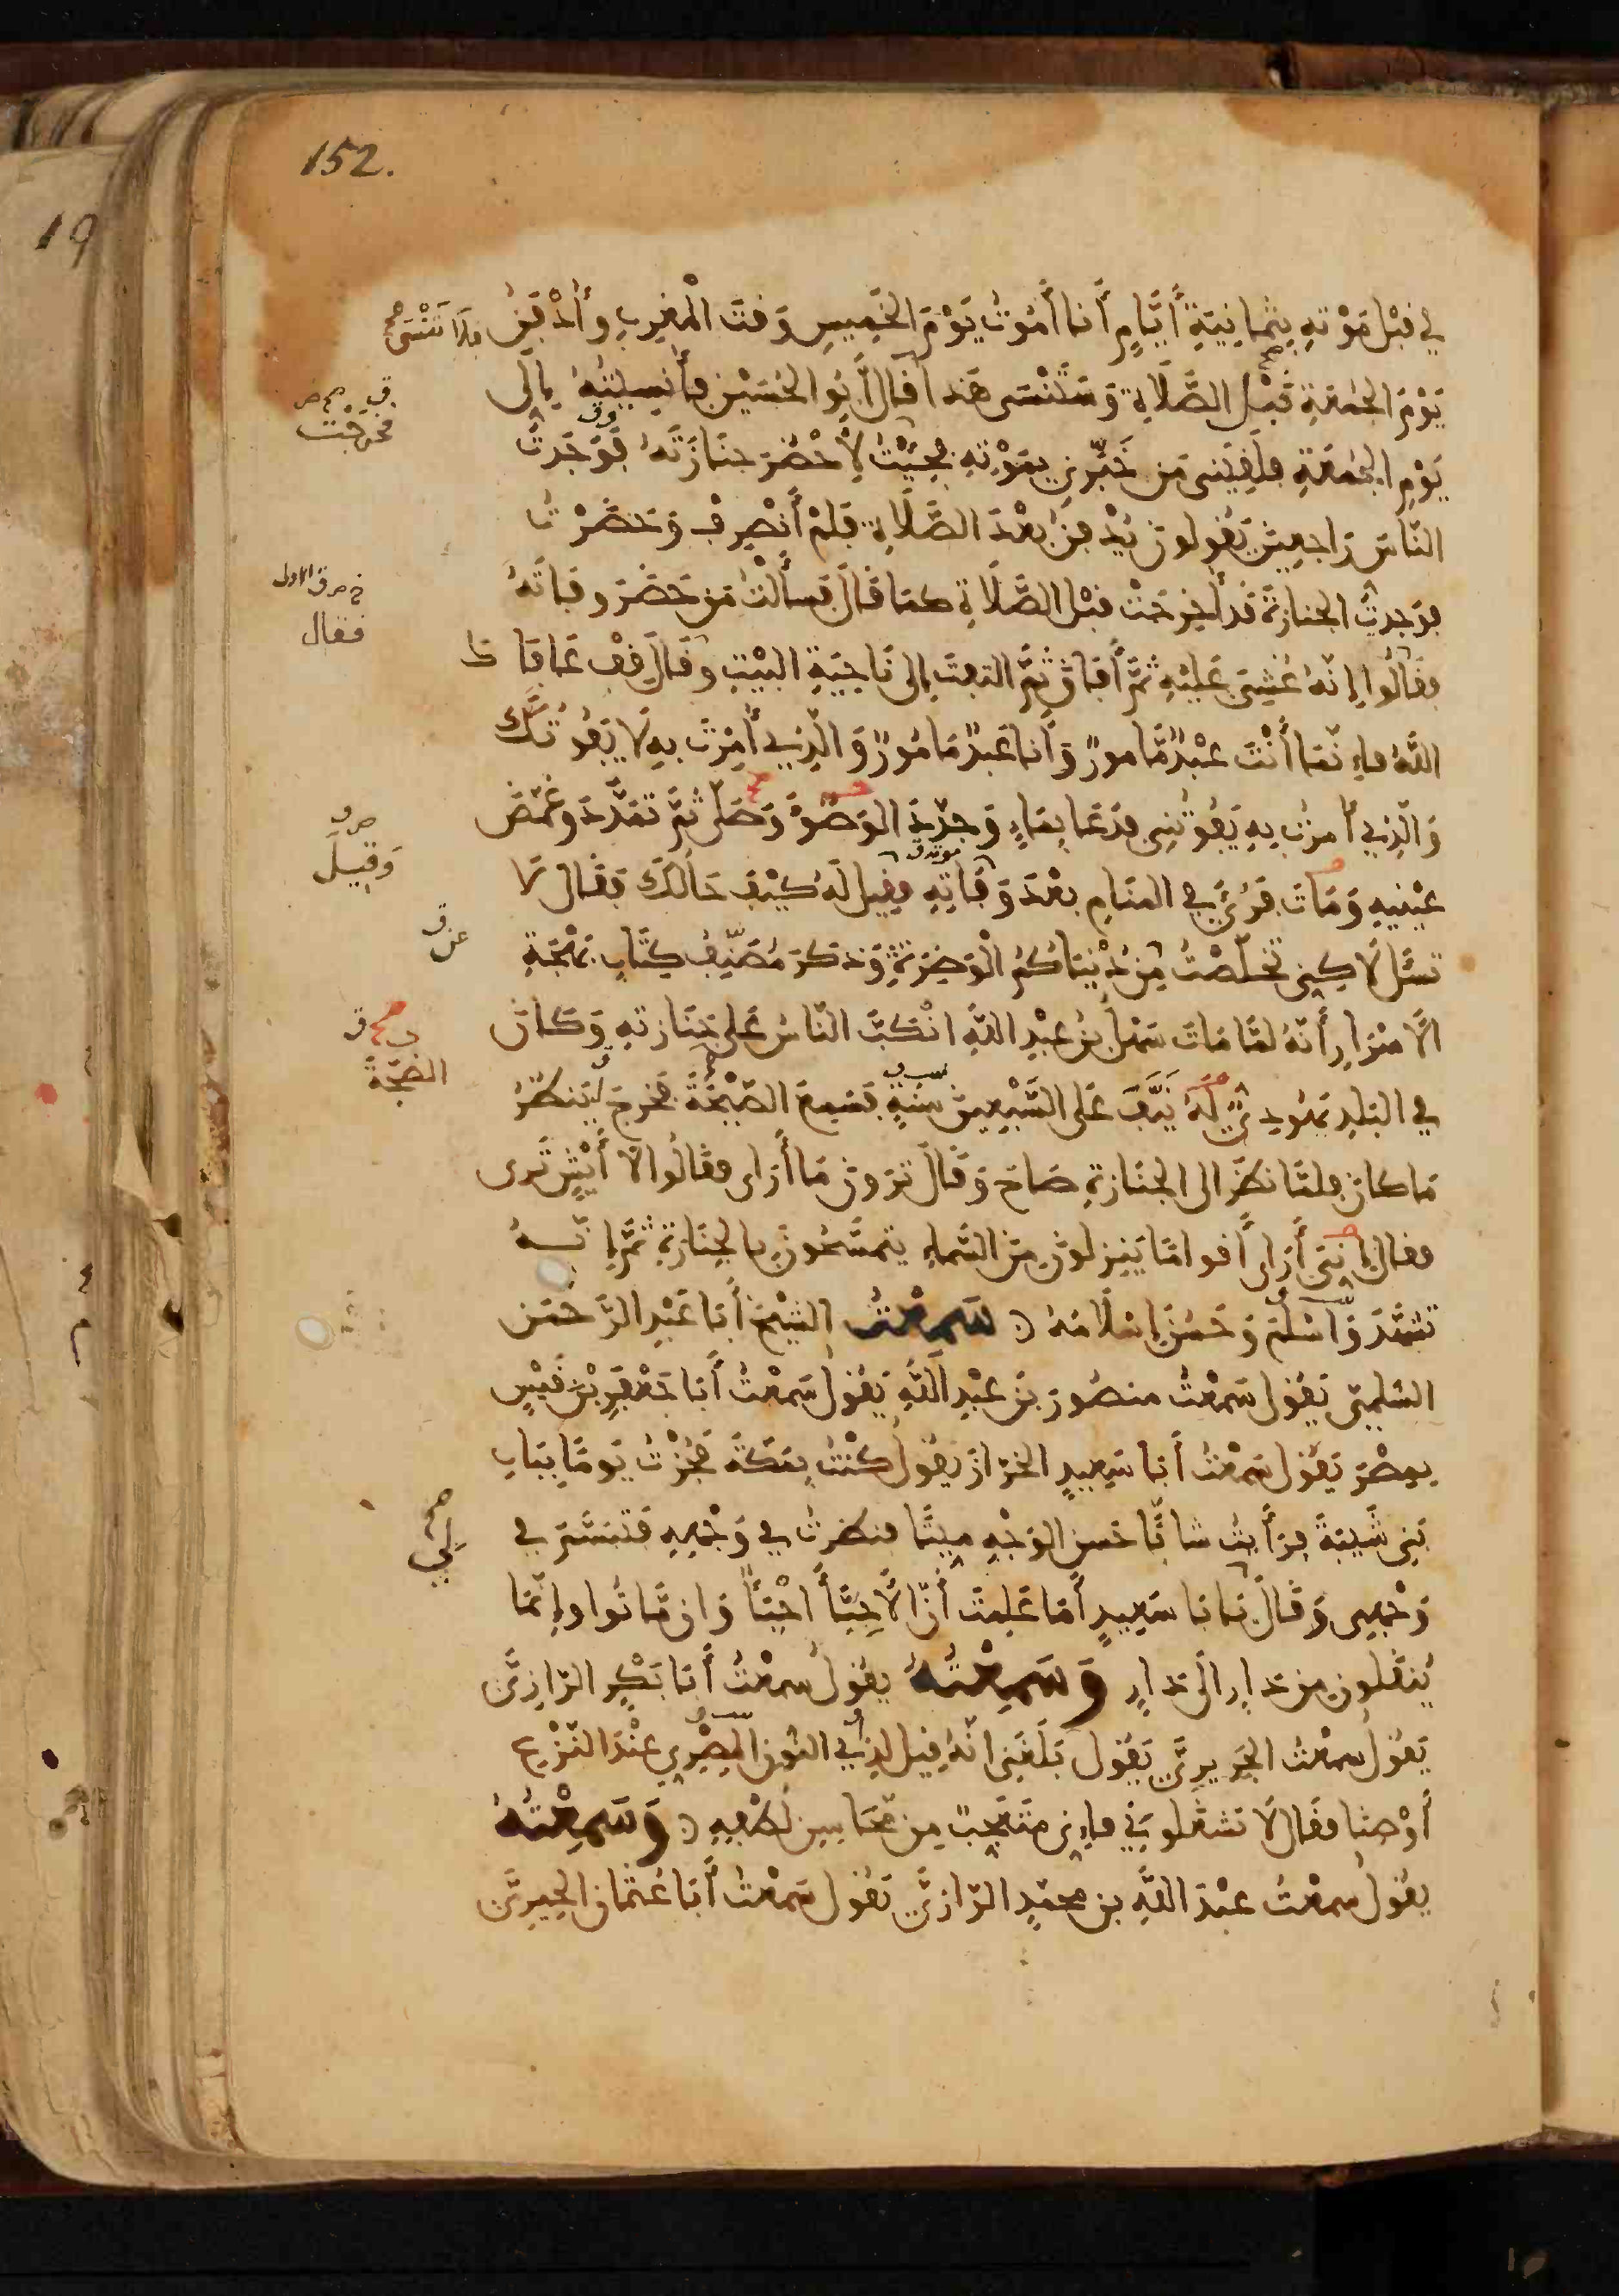 152.
19
لي قبْل مَوْتهِ بِثمانِيَةِ أيّامٍ أنا أمُوتُ يَوْمَ الخَمِيسِ وَقتَ الْمغْرِبِ وأُدْفَنُ
فلا تَنْسَى
يَوْمَ الجُمعَةِ قَبْلَ الصَّلَاةِ وَسَتَنْسَى هَذا قالَ أبُو الحُسَيْنِ فأُنسِيتُهُ إِلَى
فخرجْت
يَوْمِ الجُمُعَةِ فلَقِيَنى مَن خَبَّرنِي بمَوْتهِ فجِئْتُ لأحْضُرَ جنازَتَهُ فَوَجَدتُ
النّاسَ رَاجِعِينَ يَقُولونَ يُدْفنُ بعْدَ الصَّلَاةِ فلَمْ أنْصِرفْ وَحَضَرْتُ
فوَجدتُ الجنازةَ قَد أُخرِجَتْ قبْل الصَّلَاةِ كمَا قَالَ فسألْتُ مَن حَضَرَ وفاتَهُ
فقال
فقَالُوا إنّهُ غُشِيَ عَليْهِ ثمَّ أفاقَ ثمَّ التفتَ إلى نَاحِيَةِ البَيْتِ وقَالَ قِفْ عَافَاكَ
اللَّهُ فإنّمَا أنْتَ عبْدٌ مَّامورٌ وَأنا عَبدٌ مَامُورٌ وَالّذِي أُمِرْتَ بهِ لَا يَفُوتُكَ
وَالّذِي أُمرتُ بهِ يَفُوتُنِي فدَعَا بمَاءٍ وَجدّدَ الوُضوُءَ وَصَلّى ثمَّ تمَدَّدَ وغَمَّضَ
وَقِيلَ
عيْنيهِ وَمَاتَ فَرُئِيَ في المنَامِ بعْدَ وَفَاتِهِ فقِيل لَهُ كيْفَ حَالُكَ فقَال لَا
عن
تسَل لَاكِنى تخلّصْتُ مِن دُنْيَاكُمُ الْوَضِرَةِ وَذكَرَ مُصَنِّفُ كِتَابِ بَهْجَةِ
الأسْرَارِ أنّهُ لمّا مَاتَ سَهْل بنُ عبْدِ اللَّهِ انْكَبَّ النّاسُ عَلى جنَازتهِ وَكانَ
الضجّةَ
في البَلَدِ يَهُودِيٌّ لَهُ نَيَّفَ عَلى السَّبْعِينَ سَنةٍ فسَمِعَ الصَّيْحَةَ فخرجَ لِيَنظُرَ
مَا كانَ فلمَّا نظَرَ الى الجنَازةِ صَاحَ وَقَالَ تَرَونَ مَا أرَاى فقَالُوا لَا أيْشٍ تَرى
فقال إنّي أرَاى أقوامًا يَنزلونَ مِنَ السَّماءِ يتمسَّحُونَ بالجنَازةِ ثمَّ إنّهُ
تشهَّدَ وَأسْلَمَ وَحَسُنَ إسْلَامُهُ سَمِعْتُ الشيْخَ أبَا عَبْدِ الرَّحمَنِ
السُّلمِيَّ يَقُولُ سَمِعْتُ منصُورَ بنَ عبْدِ اللَّهِ يَقُولُ سَمِعْتُ أبَا جَعْفَرِ بْنَ قَيْسٍ
بِمِصْرَ يَقُولُ سَمِعْتُ أبَا سَعِيدٍ الخرّازَ يَقُولُ كنْتُ بمَكّةَ فَجُزْتُ يَومًا ببَابِ
بَنِي شَيْبَةَ فرَأيْتُ شابًّا حَسنَ الوَجْهِ ميّتًا فنظرتُ في وَجْهِهِ فتَبسَّمَ في
وَجْهِى وَقَالَ يَا أبَا سَعِيدٍ أمَا عَلِمتَ أنّ الأحِبّاءَ أحْيَاءٌ وَإن مَاتُوا وإنّمَا
يُنقَلُون مِن دَارٍ إلَى دَارٍ وَسَمِعْتُهُ يقُولُ سمعْتُ أبَا بَكْرٍ الرّازِيَّ
يَقُولُ سمعْتُ الجَرِيريَّ يَقُولُ بَلَغَنِي أنّهُ قِيل لِذِي النُّونِ المصْرِي عِنْدَ النَّزْعِ
أوْصِنا فقَال لَا تشغَلونِي فإنّي مُتَعَجّبٌ مِن مَحَاسِنِ لُطْفِهِ وَسَمِعْتُهُ
يقُولُ سمعْتُ عبْدَ اللَّهِ بنَ محمّدٍ الرّازيَّ يَقُولُ سَمِعْتُ أبَا عُثمَانَ الحِيرِيَّ